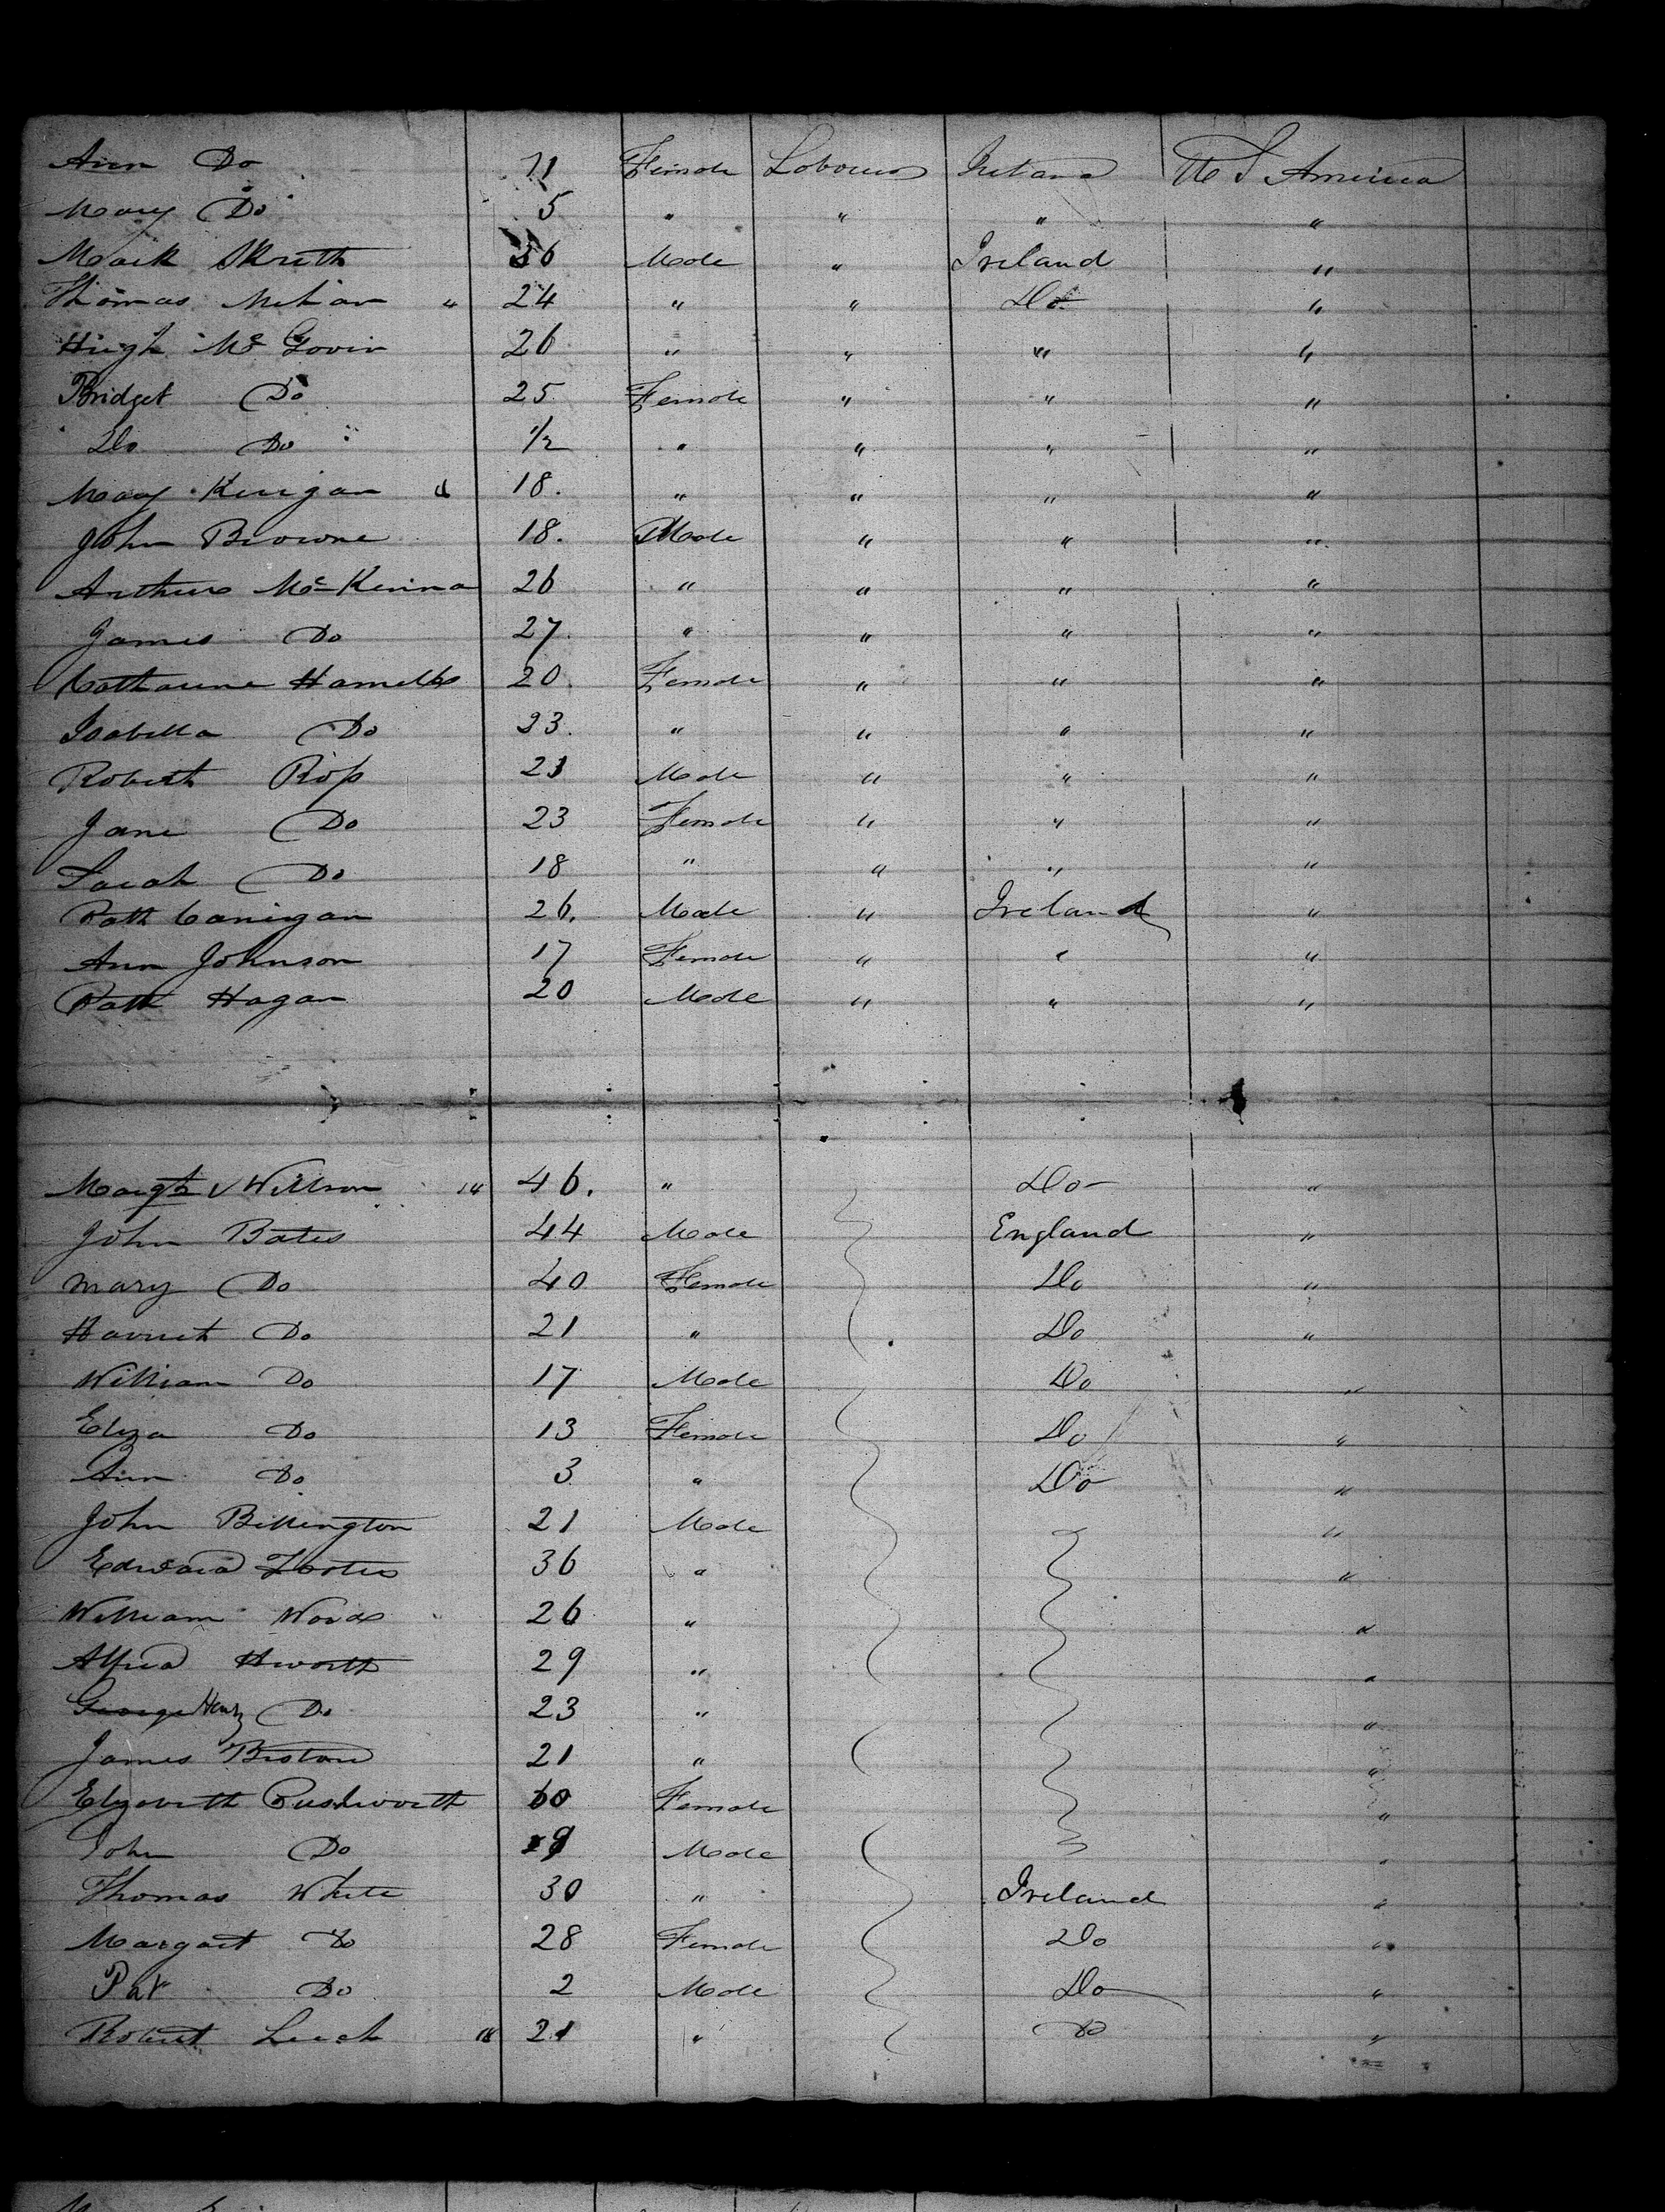 Ann Do 11 Female Labourer Ireland U S America
Mary Do 5 " " " "
Mark Skrith 36 Male " Ireland "
Thomas Mehan " 24 " " Do "
Hugh Mc Govin 26 " " " "
Bridget Do 25 Female " " "
Do Do 1/2 " " " "
Mary Kerigan 18. " " " "
John Browne 18. Male " " "
Arthur McKenna 26 " " " "
James Do 27 " " " "
Catharine 20 Female " " "
Isabella Do 23. " " " "
Robert Ross 23 Male " " "
Jane Do 23 Female " " "
Sarah Do 18 " " " "
Patk Carrigan 26. Male " Ireland "
Ann Johnson 17 Female " " "
Patk Hagan 20 Male " " "
Margt Willson 46. " Do "
John Bates 44 Male England "
Mary Do 40 Female Do "
Harriet Do 21 " Do "
William Do 17 Male Do "
Eliza Do 13 Female Do "
Ann Do 3 " Do "
John Billington 21 Male "
Edward 36 " "
William Woods 26 " "
Alfred Hworth 29 " "
George Henry Do 23 " "
James Bristow 21 " "
Elizabeth Rushworth 60 Female "
John Do Male "
Thomas White 30 " Ireland "
Margaet Do 28 Female Do "
Pat Do 2 Male Do "
Robert Leech 21 " Do "